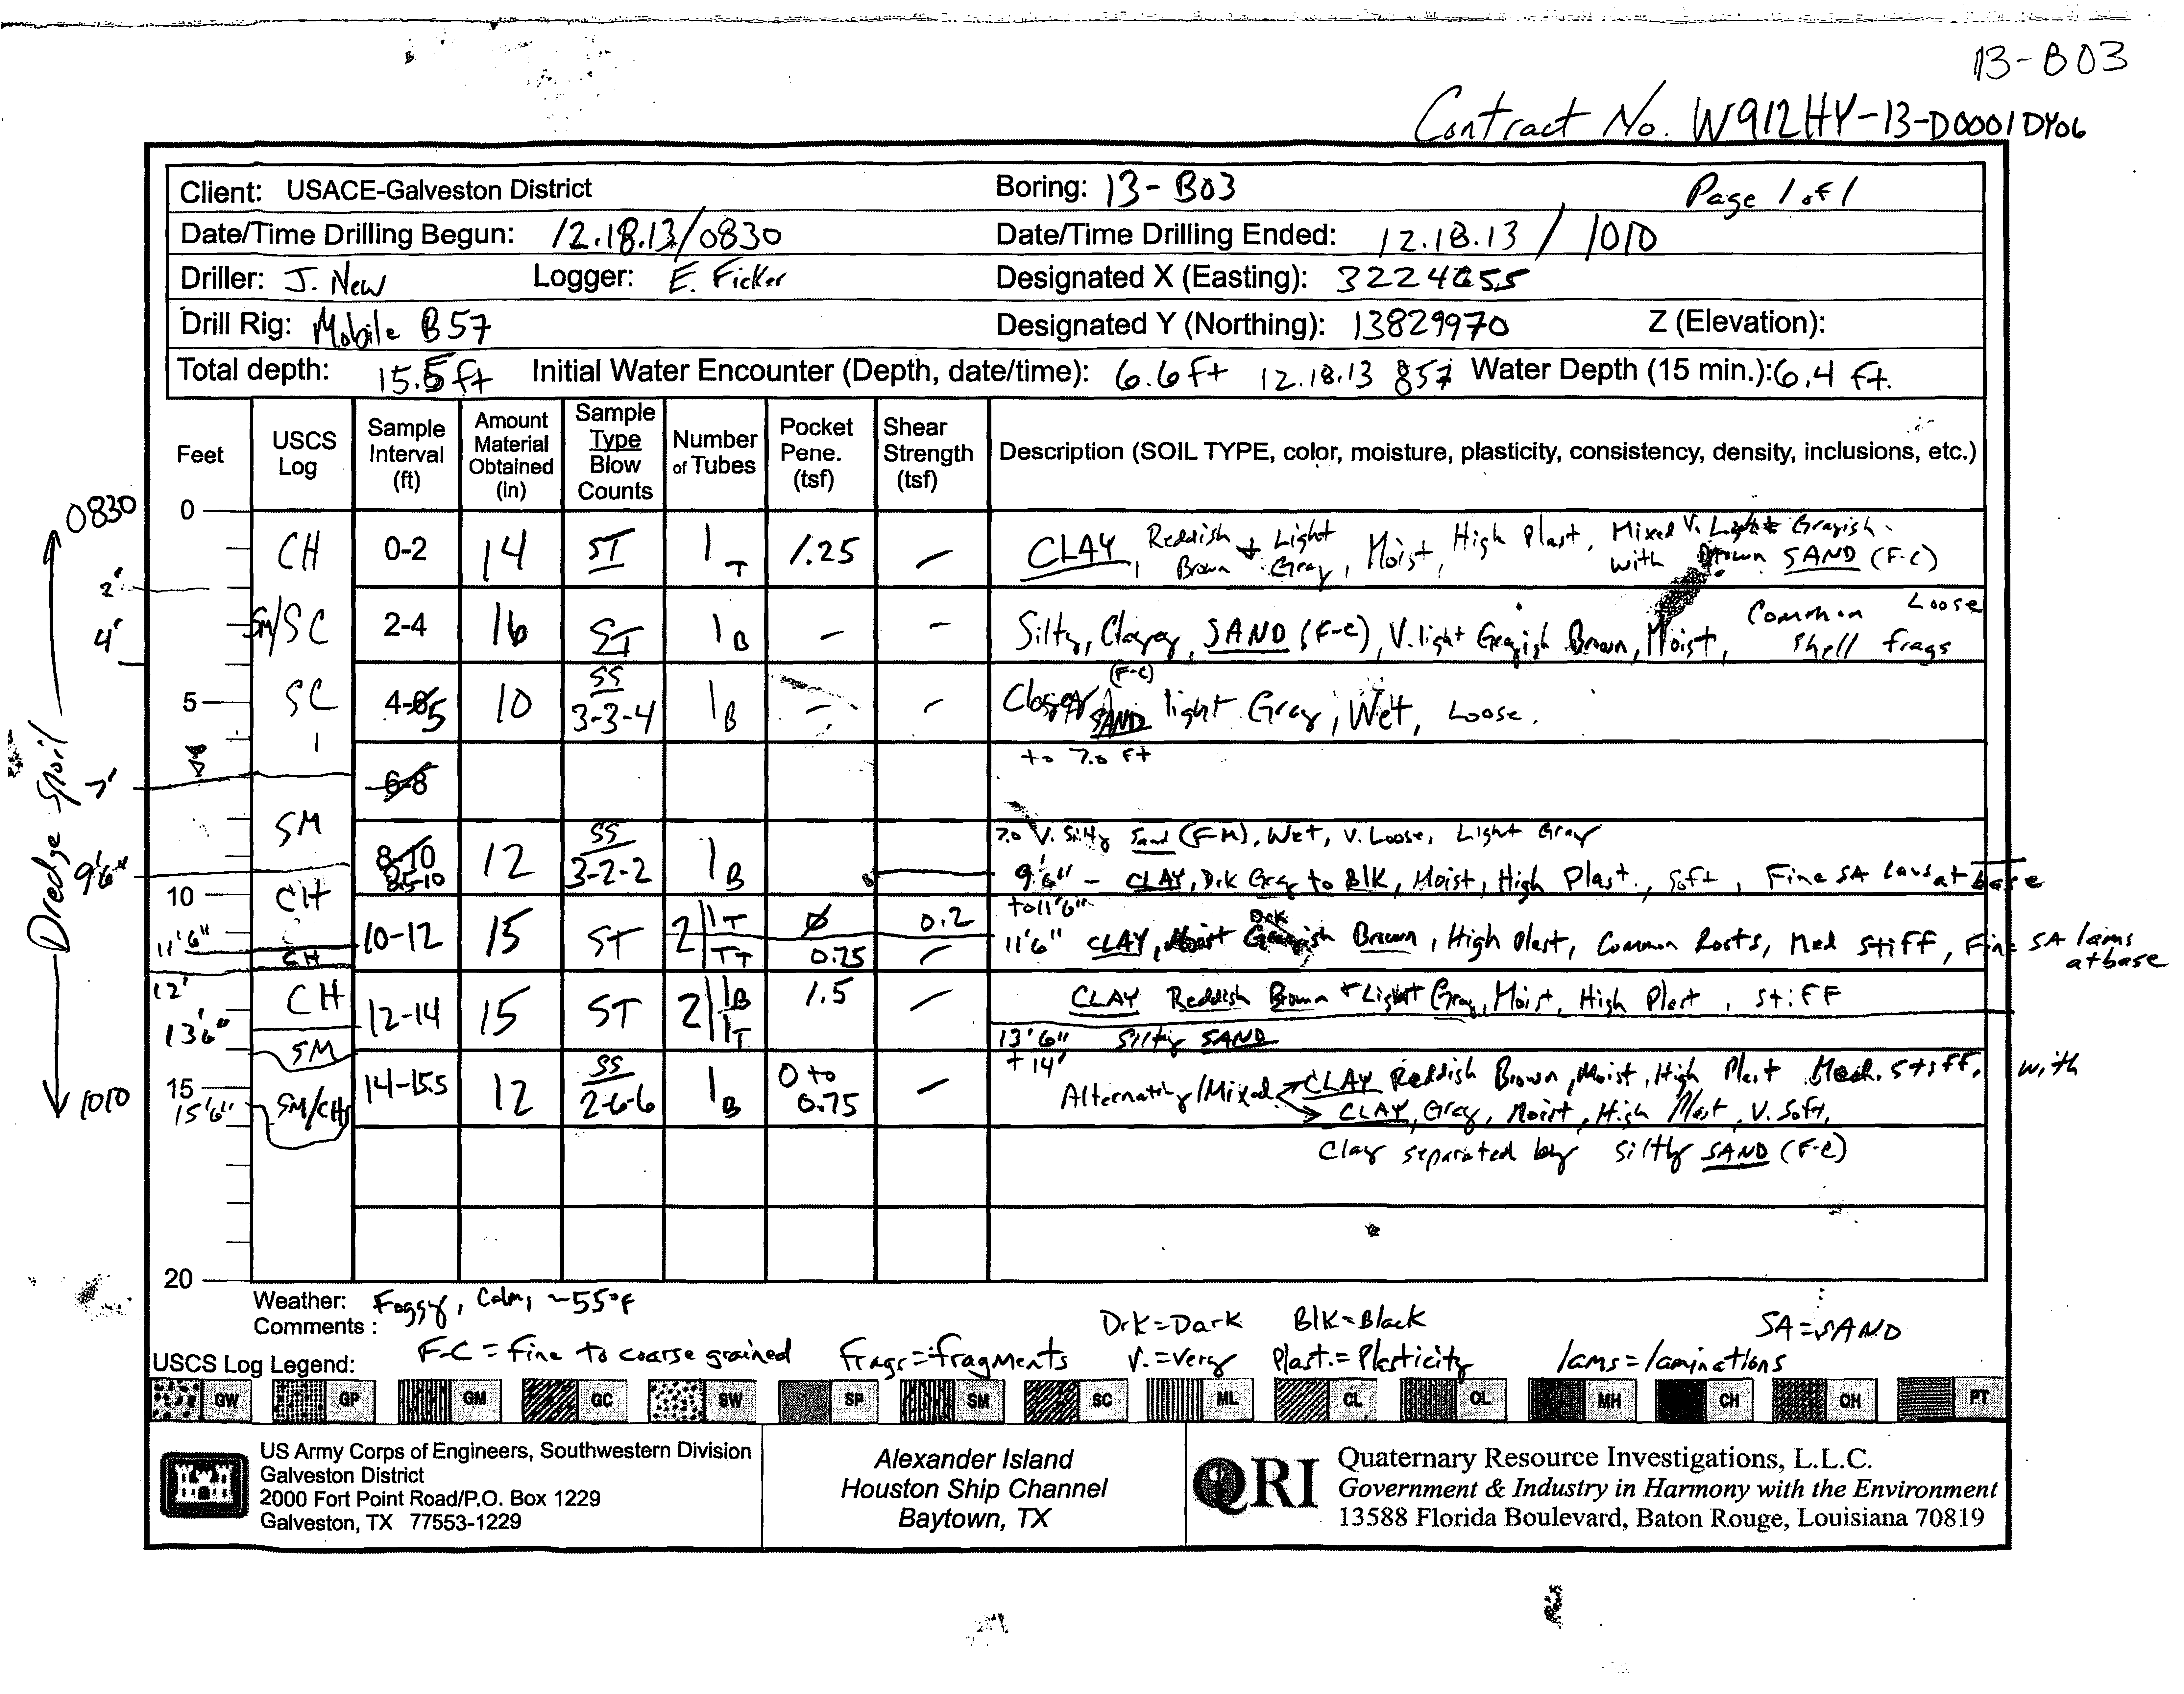 13-B03
Contract No. W912HY-13-D0001DY06
Client: USACE-Galveston District Boring: 13-B03 Page 1 of 1
Date/Time Drilling Begun: 12.18.13/0830 Date/Time Drilling Ended: 12.18.13 / 1010
Driller: J. New Logger: E. Ficker Designated X (Easting): 3224055
Drill Rig: Mobile B57 Designated Y (Northing): 13829970 Z (Elevation):
Total depth: 15.5 ft Initial Water Encounter (Depth, date/time): 6.6 ft 12.18.13 857 Water Depth (15 min.): 6.4 ft.
Feet USCS Log Sample Interval (ft) Amount Material Obtained (in) Sample Type Blow Counts Number of Tubes Pocket Pene. (tsf) Shear Strength (tsf) Description (SOIL TYPE, color, moisture, plasticity, consistency, density, inclusions, etc.)
0830 0
CH 0-2 14 ST 1T 1.25 – CLAY, Reddish Brown + Light Gray, Moist, High Plast, Mixed with V. Light Grayish Brown SAND (F-C)
2'
SM/SC 2-4 16 ST 1B – – Silty, Clayey, SAND (F-C), V. light Grayish Brown, Moist, Common Loose shell frags
4'
5 SC 4-5 10 SS 3-3-4 1B – – Clayey SAND (F-C) light Gray, Wet, Loose.
to 7.0 ft
7' 6-8
SM 7.0 V. Silty Sand (F-M), Wet, V. Loose, Light Gray
8-10 8.5-10 12 SS 3-2-2 1B
9'6" 9'6" - CLAY, Drk Gray to Blk, Moist, High Plast., Soft, Fine SA lams at base
to 11'6"
10 CH 10-12 15 ST 2 1T Ø 0.2
11'6" CH 1T 0.75 – 11'6" CLAY, Moist Drk Grayish Brown, High Plast, Common Roots, Med Stiff, Fine SA lams at base
12' CH 12-14 15 ST 2 1B 1T 1.5 – CLAY Reddish Brown + Light Gray, Moist, High Plast, Stiff
13'6" SM 13'6" Silty SAND
+ 14'
15 14-15.5 12 SS 2-6-6 1B 0 to 0.75 – Alternating/Mixed CLAY Reddish Brown, Moist, High Plast Med. Stiff, with
1010 15'6" SM/CH CLAY, Gray, Moist, High Plast, V. Soft,
Clay separated by silty SAND (F-C)
20
Dredge Spoil
Weather: Foggy, Calm, ~55°F
Comments: Drk=Dark Blk=Black SA=SAND
F-C = fine to coarse grained frags=fragments V.=Very Plast.=Plasticity lams=laminations
USCS Log Legend:
GW GP GM GC SW SP SM SC ML CL OL MH CH OH PT
US Army Corps of Engineers, Southwestern Division
Galveston District
2000 Fort Point Road/P.O. Box 1229
Galveston, TX 77553-1229
Alexander Island
Houston Ship Channel
Baytown, TX
QRI
Quaternary Resource Investigations, L.L.C.
Government & Industry in Harmony with the Environment
13588 Florida Boulevard, Baton Rouge, Louisiana 70819